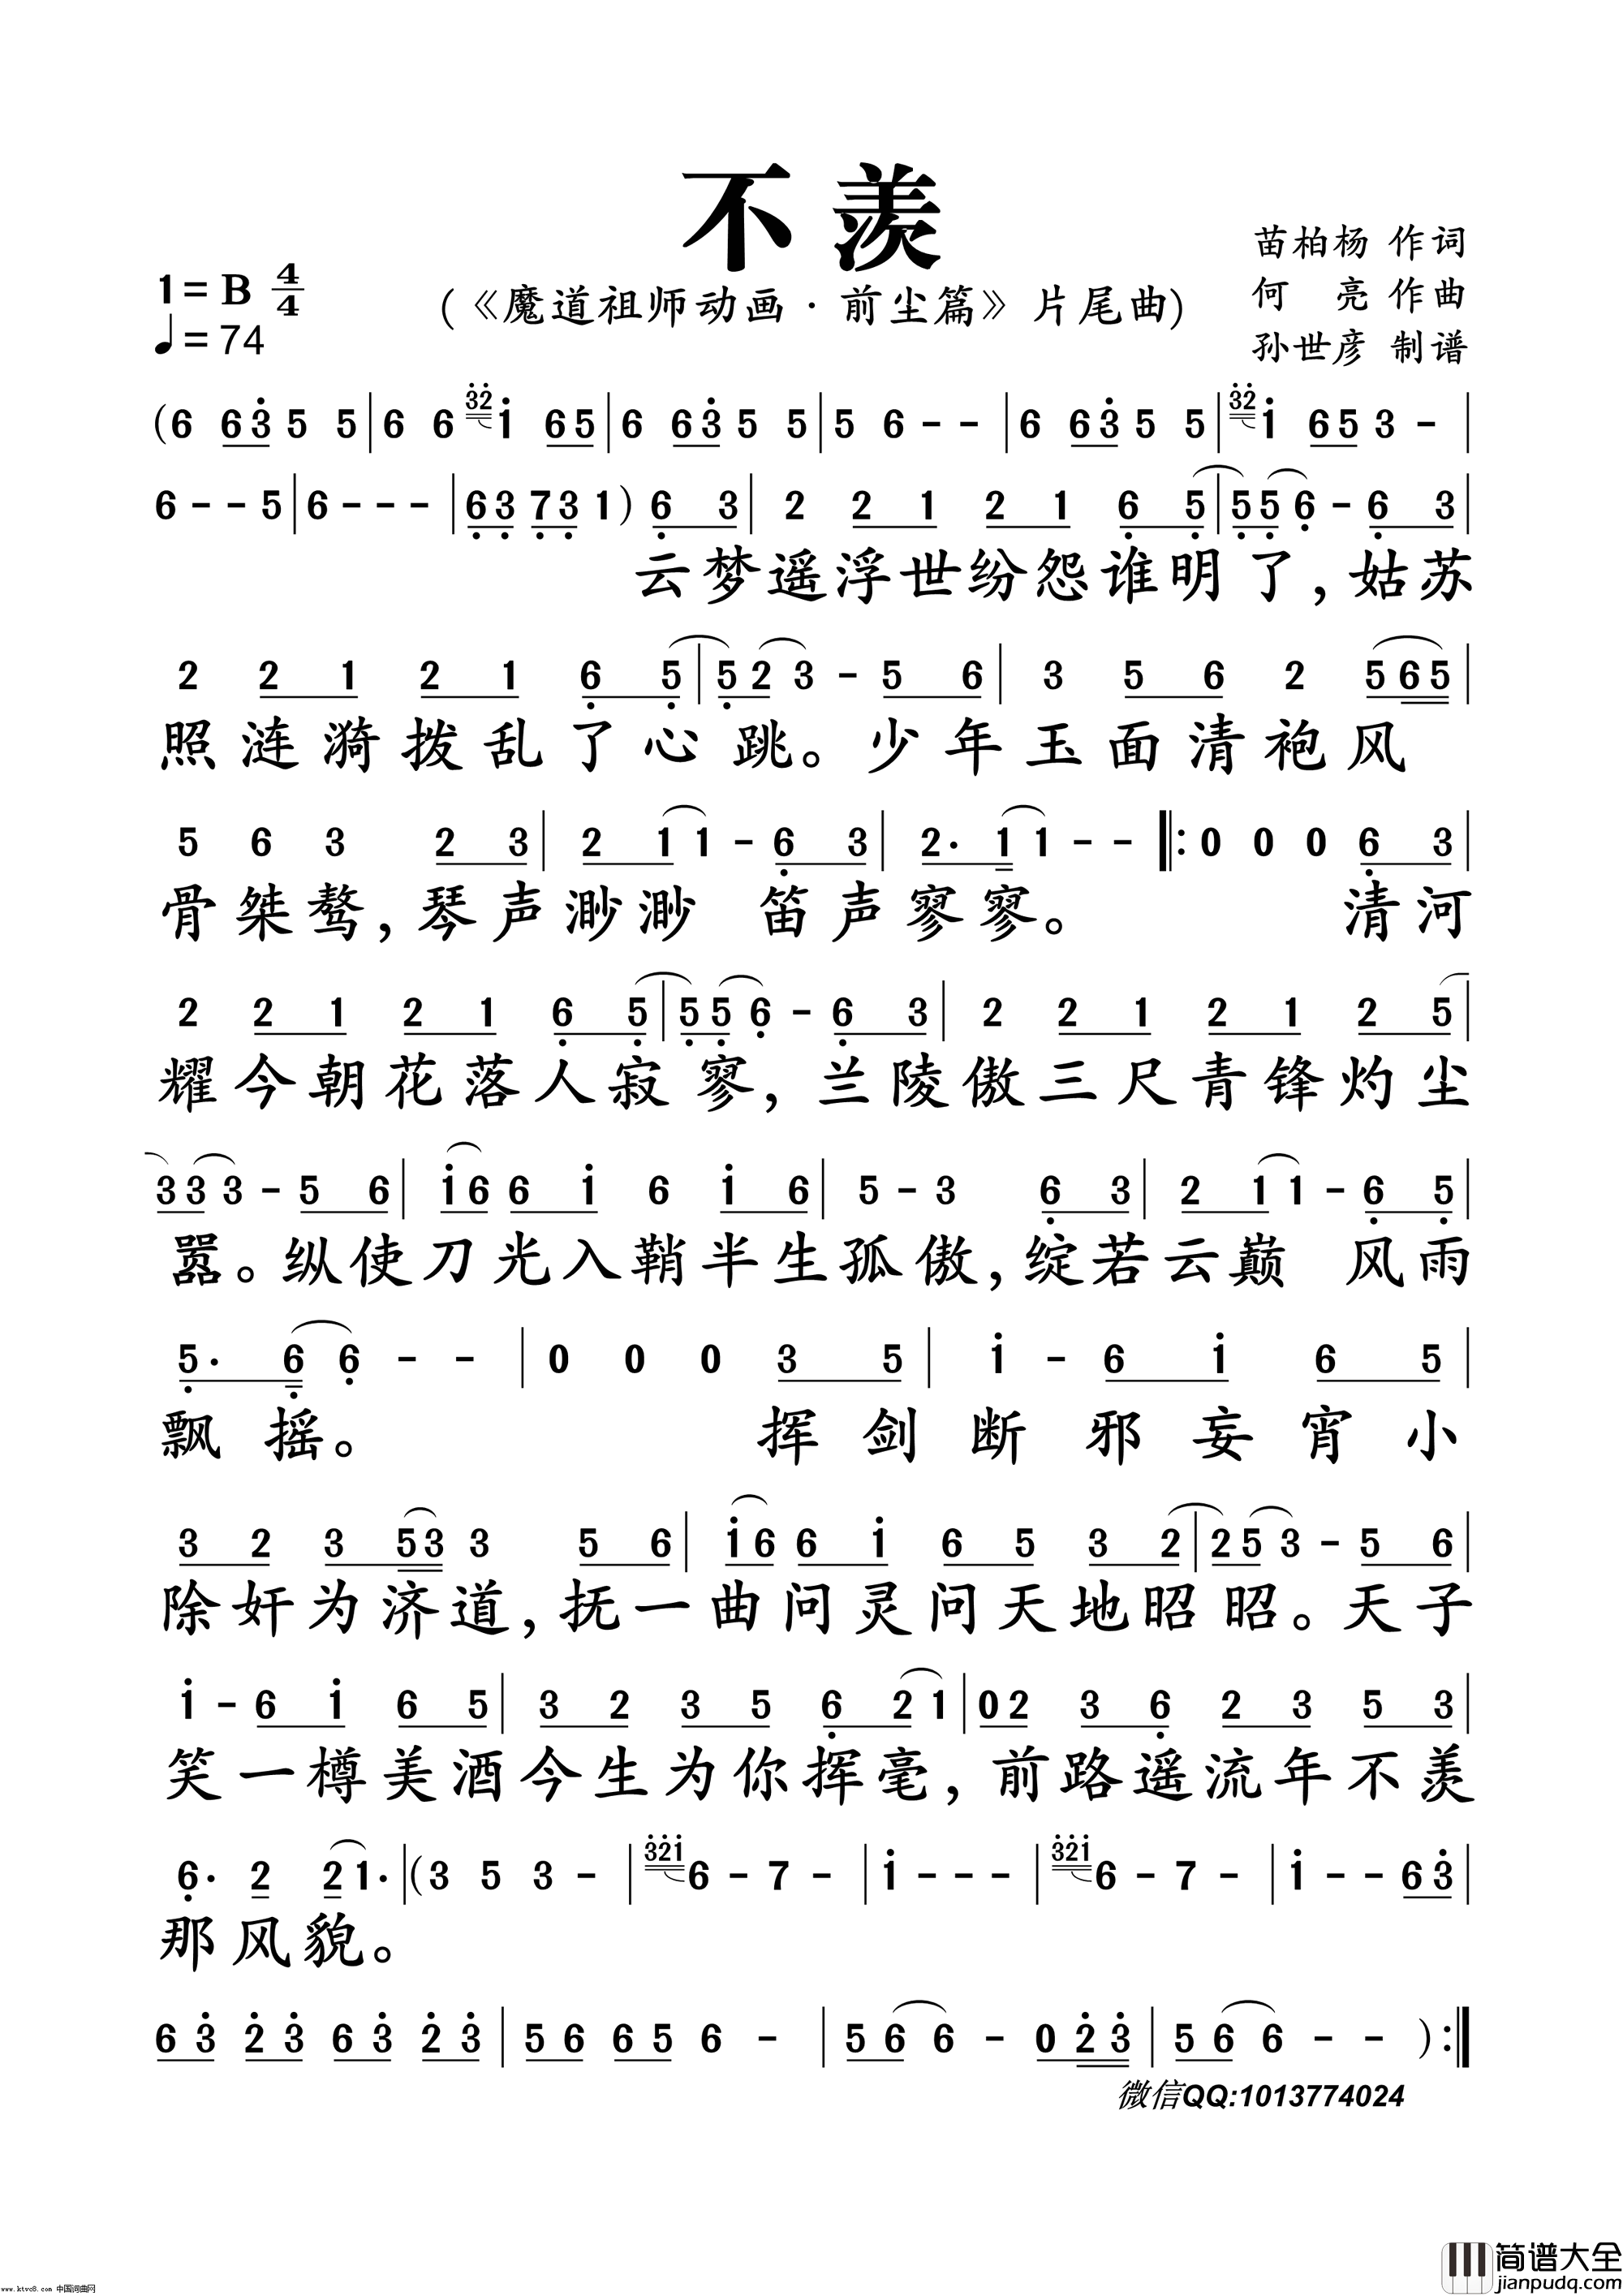 不羡
苗柏杨 作词
1=B 4/4
(《魔道祖师动画·前尘篇》片尾曲)
何 亮 作曲
♩=74
孙世彦 制谱
(6 63̇ 5 5|6 6 3̇2̇1̇ 65|6 63̇ 5 5|5 6 - -|6 63̇ 5 5|3̇2̇1̇ 65 3 -|
6 - - 5|6 - - -|6̣3̣ 7̣3̣ 1) 6̣3|2 21 21 6̣5̣|5̣5̣ 6̣ - 6̣3|
云梦遥浮世纷怨谁明了,姑苏
2 21 21 6̣5̣|5̣2 3 - 56|3 56 2 565|
照涟漪拨乱了心跳。少年玉面清袍风
5 6 3 23|21 1 - 6̣3|2. 1 1 - -|:0 0 0 6̣3|
骨桀骜,琴声渺渺 笛声寥寥。 清河
2 21 21 6̣5̣|5̣5̣ 6̣ - 6̣3|2 21 21 25|
耀今朝花落人寂寥,兰陵傲三尺青锋灼尘
33 3 - 56|1̇6 61̇ 6 1̇6|5 - 3 6̣3|21 1 - 6̣5̣|
嚣。纵使刀光入鞘半生孤傲,绽若云巅 风雨
5̣. 6̣ 6̣ - -|0 0 0 35|1̇ - 61̇ 65|
飘摇。 挥剑断邪妄宵小
32 353 3 56|1̇6 61̇ 65 32|25 3 - 56|
除奸为济道,抚一曲问灵问天地昭昭。天子
1̇ - 61̇ 65|32 35 6̣2 1|02 36̣ 23 53|
笑一樽美酒今生为你挥毫,前路遥流年不羡
6̣. 2 2 1.|(3 5 3 -|3̇2̇1̇6 - 7 -|1̇ - - -|3̇2̇1̇6 - 7 -|1̇ - - 63̇|
那风貌。
63̇ 2̇3̇ 63̇ 2̇3̇|56 65 6 -|56 6 - 02̇3̇|56 6 - -):|
微信QQ:1013774024
简谱大全
jianpudq.com
www.ktvc8.com 中国词曲网